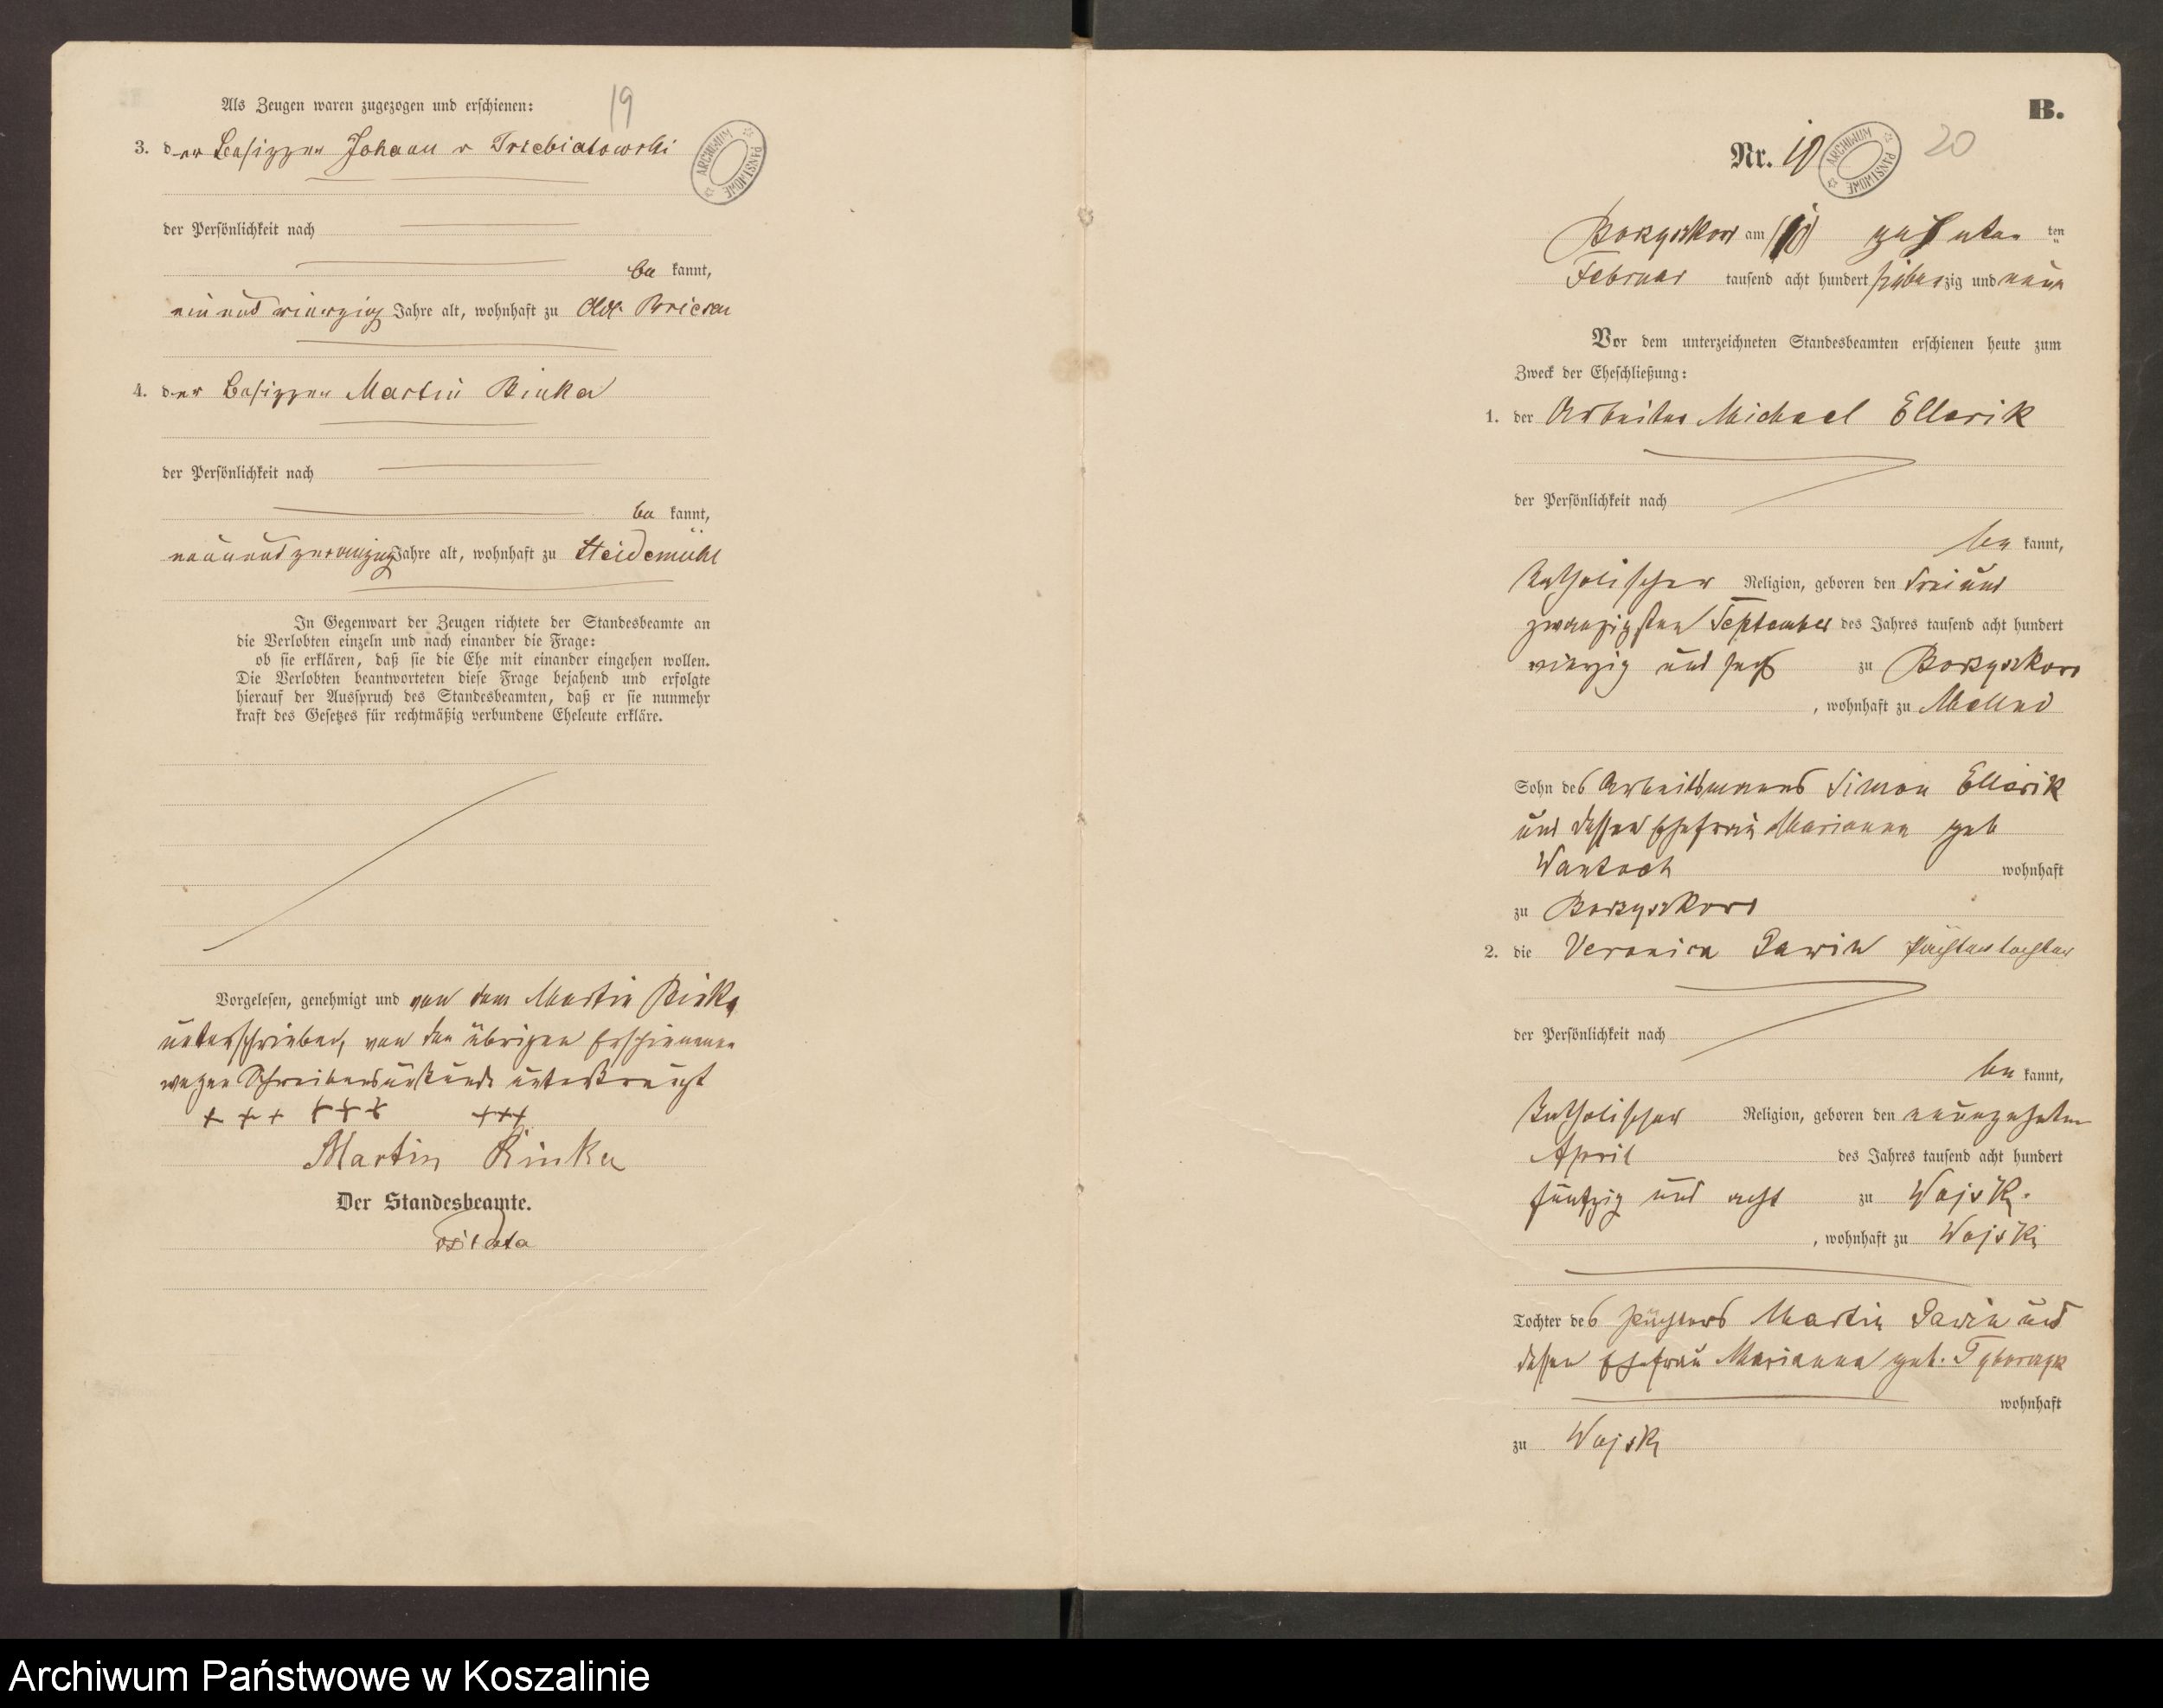 19
Als Zeugen waren zugezogen und erschienen:
3. der Besitzer Johann v Trzebiatowski
ARCHIWUM PAŃSTWOWE
der Persönlichkeit nach
be kannt,
ein und vierzig Jahre alt, wohnhaft zu Alt Briesen
4. der Besitzer Martin Rinka
der Persönlichkeit nach
be kannt,
neun und zwanzig Jahre alt, wohnhaft zu Heidemühl
In Gegenwart der Zeugen richtete der Standesbeamte an
die Verlobten einzeln und nach einander die Frage:
ob sie erklären, daß sie die Ehe mit einander eingehen wollen.
Die Verlobten beantworteten diese Frage bejahend und erfolgte
hierauf der Ausspruch des Standesbeamten, daß er sie nunmehr
kraft des Gesetzes für rechtmäßig verbundene Eheleute erkläre.
Vorgelesen, genehmigt und von dem Martin Rinka
unterschrieben, von den übrigen Erschienenen
wegen Schreibensunkunde unterkreuzt
+ + + + + + +++
Martin Rinka
Der Standesbeamte.
B.
Nr. 10
ARCHIWUM PAŃSTWOWE
20
Borzyskowo am (10) zehnten ten
Februar tausend acht hundert siebenzig und neun
Vor dem unterzeichneten Standesbeamten erschienen heute zum
Zweck der Eheschließung:
1. der Arbeiter Michael Ellerik
der Persönlichkeit nach
be kannt,
katholischer Religion, geboren den drei und
zwanzigsten September des Jahres tausend acht hundert
vierzig und sechs zu Borzyskowo
, wohnhaft zu Mellno
Sohn des Arbeitsmanns Simon Ellerik
und dessen Ehefrau Marianna geb
Wantoch wohnhaft
zu Borzyskowo
2. die Veronica Gawin Pächterstochter
der Persönlichkeit nach
be kannt,
katholischer Religion, geboren den neunzehnten
April des Jahres tausend acht hundert
fünfzig und acht zu Wojsk.
, wohnhaft zu Wojsk
Tochter des Pächters Martin Gawin und
dessen Ehefrau Marianna geb.
wohnhaft
zu Wojsk
Archiwum Państwowe w Koszalinie